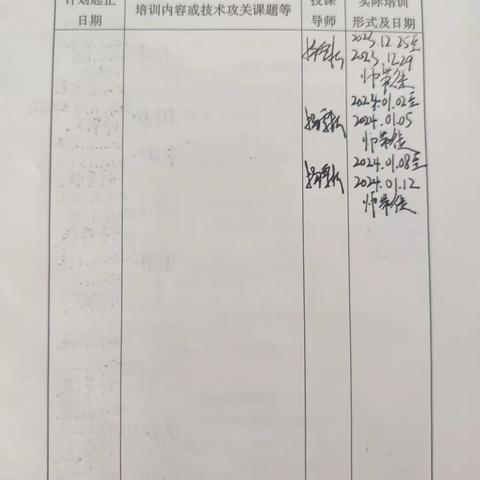 计划起止
日期
培训内容或技术攻关课题等
授课
导师
实际培训
形式及日期
2023.12.25至
2023.12.29
师带徒
2024.01.02至
2024.01.05
师带徒
2024.01.08至
2024.01.12
师带徒